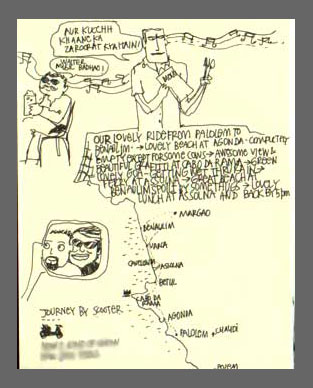 AUR KUCCHH
KHAANE KA
ZAROORAT KYA HAIN!
WALTER,
MUSIC BADHAO!
MENU
OUR LOVELY RIDE FROM PALOLEM TO
BENAULIM → LOVELY BEACH AT AGONDA - COMPLETELY
EMPTY EXCEPT FOR SOME COWS → AWESOME VIEW &
BEAUTIFUL GRAFFITI AT CABO DA RAMA → GREEN
LOVELY GOA - GETTING WET THROUGH
FERRY AT ASSOLNA → GREAT BEACH AT
BENAULIM SPOILT BY SOME THUGS → LOVELY
LUNCH AT ASSOLNA AND BACK BY 5pm
MARGAO
BENAULIM
VARCA
CAVELOSSIM
ASSOLNA
BETUL
CABO DA
RAMA
AGONDA
PALOLEM
CHAUDI
JOURNEY BY SCOOTER